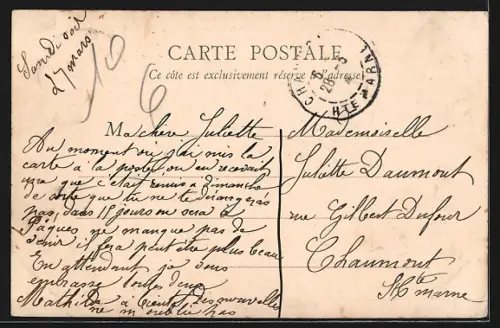 Samedi soir
27 mars
10
6
CARTE POSTALE
Ce côté est exclusivement réservé à l'adresse
CHA
28-3
HTE MARNE
Ma chère Juliette
Au moment ou j'ai mis la
carte à la poste, on en recevait
une que c'était remis à dimanche
de sorte que tu ne te dérangeras
pas, dans 15 jours on sera à
Pâques ne manque pas de
venir il fera peut être plus beau
En attendant je vous
embrasse toutes deux
Mathilde à des nouvelles
ne m'oublie pas
Mademoiselle
Juliette Daumont
rue Gilbert Dufour
Chaumont
Hte marne